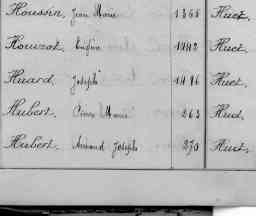 Houssin, Jean Marie 1368 Huet
Houzat, Eugène 1442 Huet
Huard, Joseph 1486 Huet.
Hubert, Marie 263 Hud
Hubert, Armand Joseph 270 Huet.